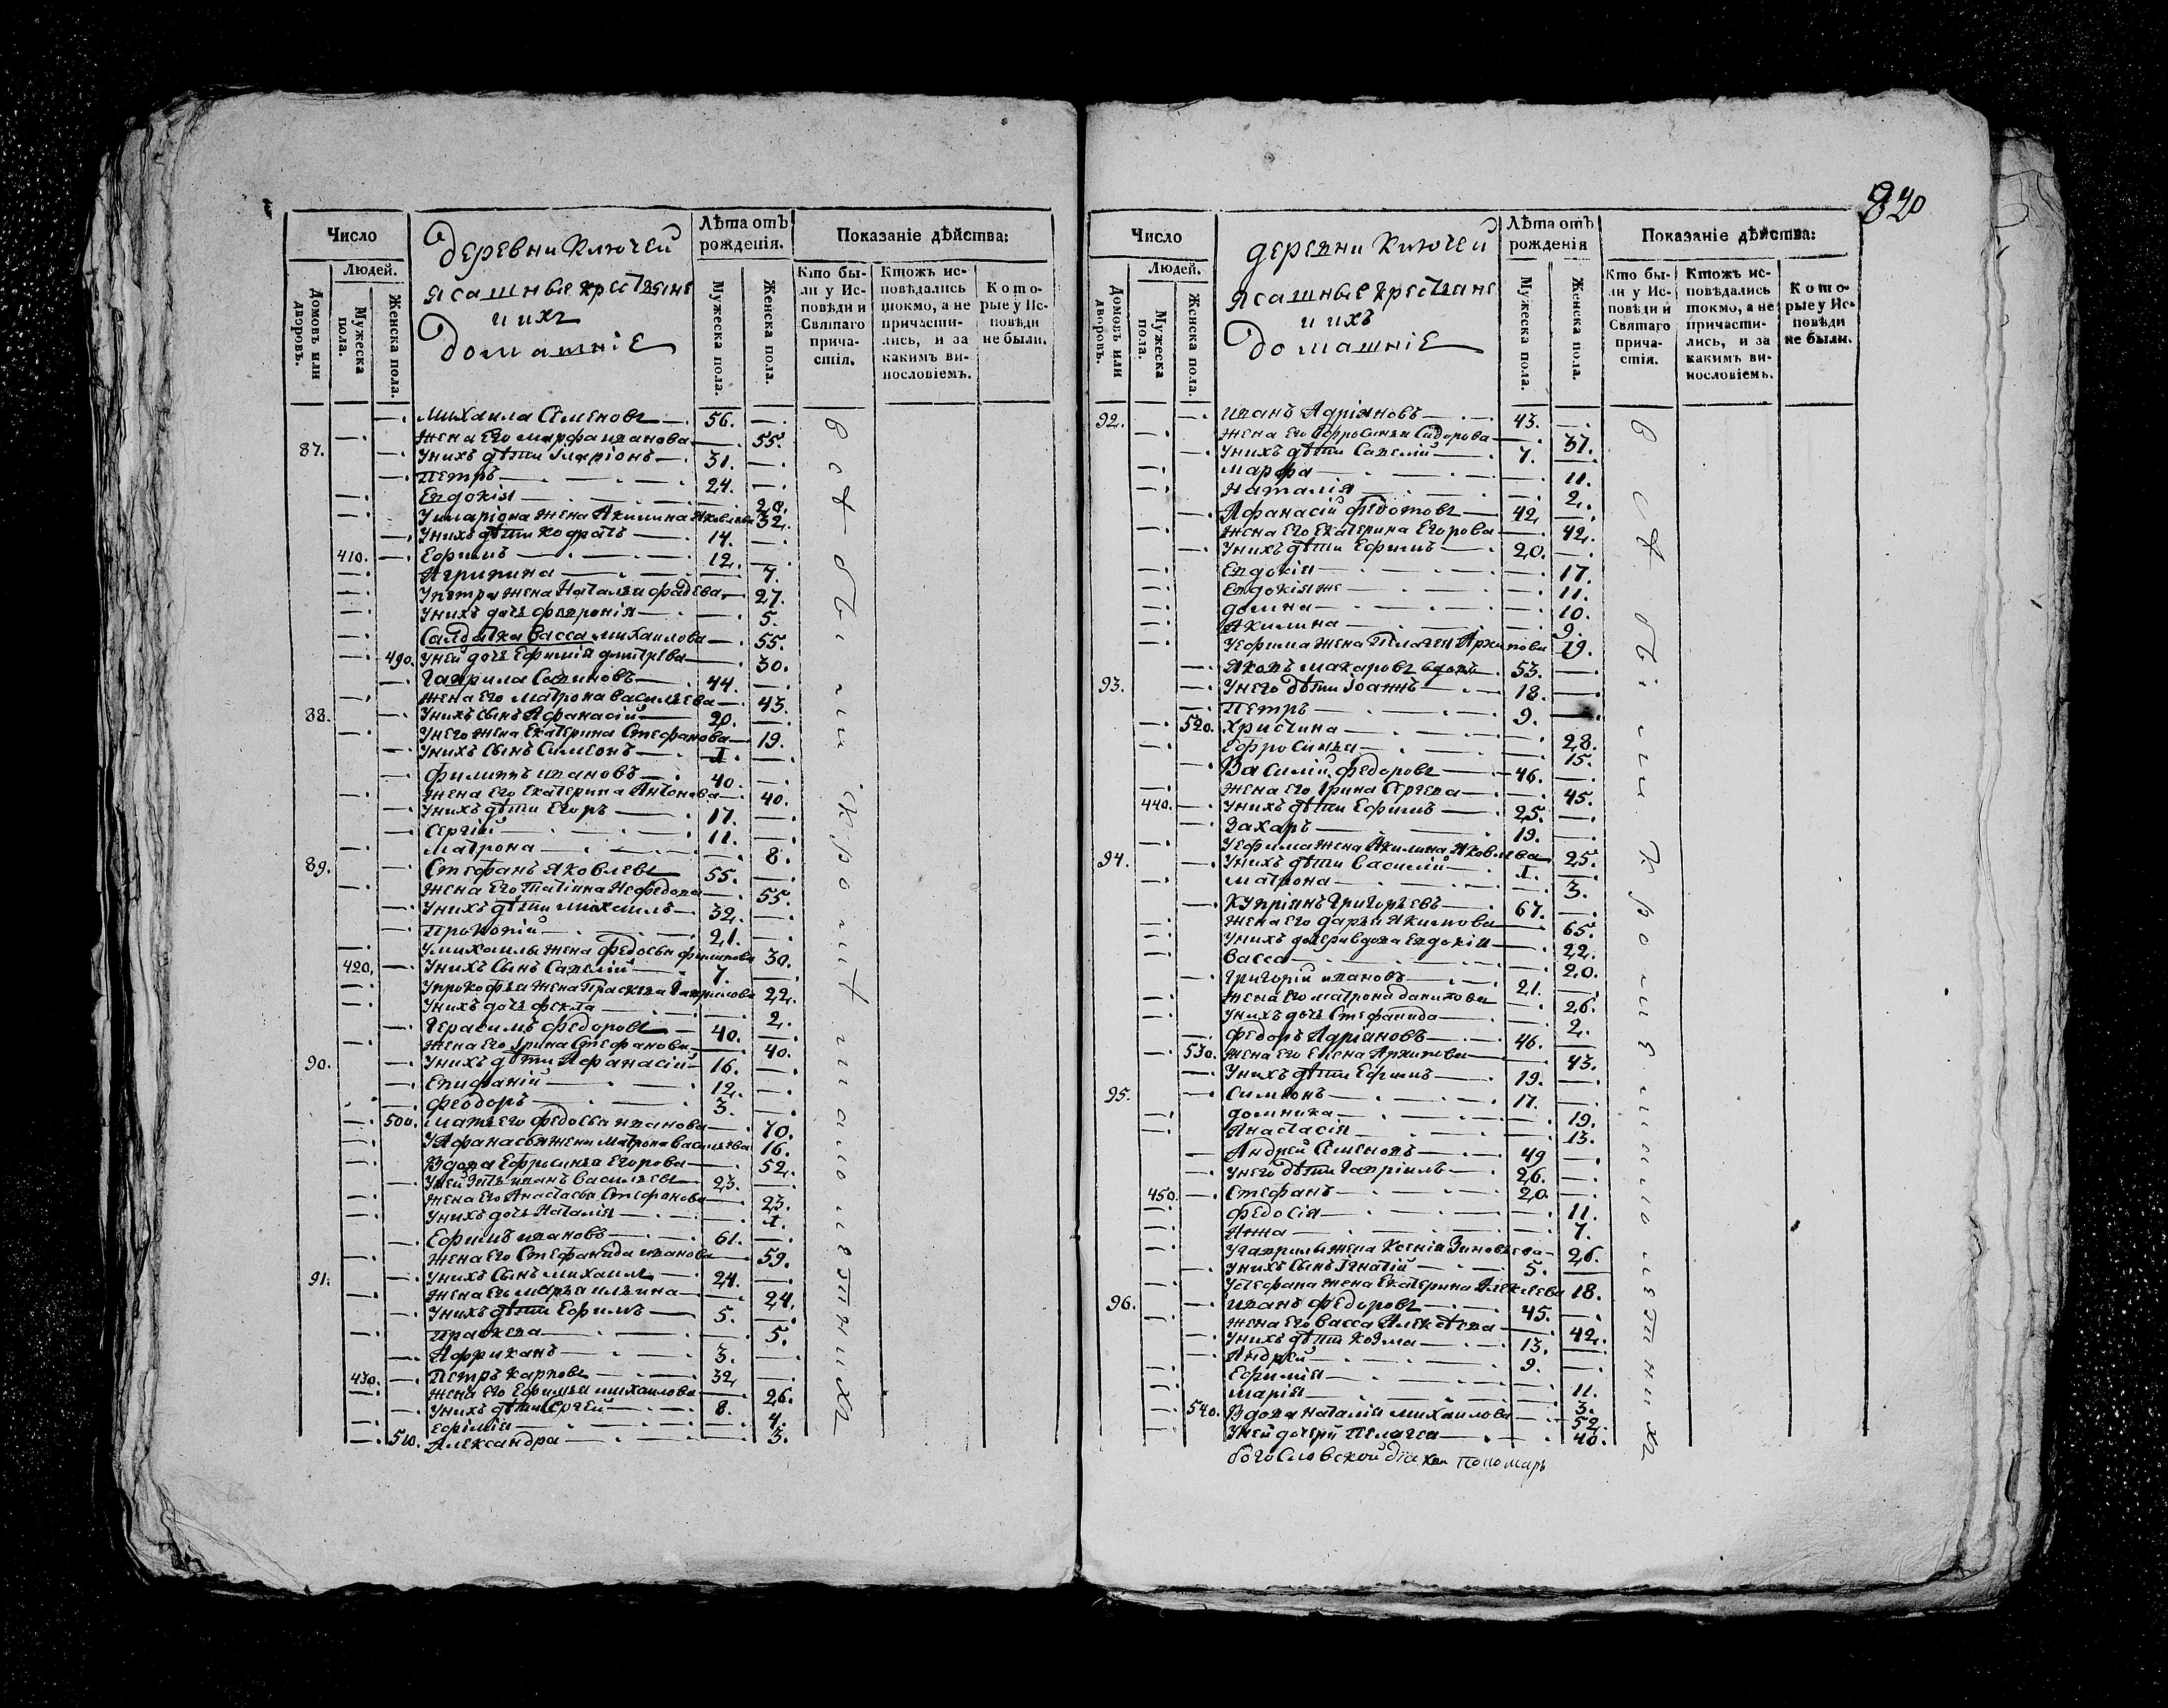 840
Число
Людей.
Домовъ или дворовъ.
Мужеска пола.
Женска пола.
деревни Ключей
ясашные крестьяне
и ихъ
домашніе
Лѣта отъ рожденія.
Мужеска пола.
Женска пола.
Показаніе дѣйства:
Кто были у Исповѣди и Святаго причастія.
Ктожъ исповѣдались токмо, а не причастились, и за какимъ винословіемъ.
Которые у Исповѣди не были.
Михаила Семеновъ 56.
жена его Марфа Иванова 55.
87. У нихъ дѣти Іларіонъ 31.
Петръ 24.
Евдокія 20.
У Иларіона жена Акилина Яковлева 32.
У нихъ дѣти Кодратъ 14.
410. Ефимъ 12.
Агрипина 7.
У Петра жена Наталья Фадѣева 27.
У нихъ дочь Февронія 5.
Салдатка Васса Михаилова 55.
490. У ней дочь Ефимія Дмитрева 30.
Гаврила Савиновъ 44.
жена его Матрона Васильева 43.
88. У нихъ сынъ Афанасій 20.
У него жена Екатерина Стефанова 19.
У нихъ сынъ Симеонъ 1.
Филиппъ Ивановъ 40.
жена его Екатерина Антонова 40.
У нихъ дѣти Егоръ 17.
Сергій 11.
Матрона 8.
89. Стефанъ Яковлевъ 55.
жена его Татіяна Нефедова 55.
У нихъ дѣти Михаилъ 32.
Прокопій 21.
У Михаилы жена Федосья Филипова 30.
420. У нихъ сынъ Савелій 7.
У Прокофья жена Праскева Гаврилова 22.
У нихъ дочь Фекла 2.
Герасимъ Федоровъ 40.
жена его Ірина Стефанова 40.
90. У нихъ дѣти Афанасій 16.
Епифаній 12.
Феодоръ 3.
500. Мать его Федосья Иванова 70.
У Афанасья жена Матрона Васильева 16.
Вдова Ефросинья Егорова 52.
У ней зять Иванъ Васильевъ 23.
жена его Анастасья Стефанова 23.
У нихъ дочь Наталія 1.
Ефимъ Ивановъ 61.
жена его Стефанида Иванова 59.
91. У нихъ сынъ Михаилъ 24.
жена его Марья Ильина 24.
У нихъ дѣти Ефимъ 5.
Праскева 5.
Африканъ 3.
430. Петръ Карповъ 32.
жена его Ефимья Михаилова 26.
У нихъ дѣти Сергей 8.
Ефімія 4.
510. Александра 3.
Число
Людей.
Домовъ или дворовъ.
Мужеска пола.
Женска пола.
деревни Ключей
ясашные крестьяне
и ихъ
домашніе
Лѣта отъ рожденія
Мужеска пола.
Женска пола.
Показаніе дѣйства:
Кто были у Исповѣди и Святаго причастія.
Ктожъ исповѣдались токмо, а не причастились, и за какимъ винословіемъ.
Которые у Исповѣди не были.
92. Иванъ Адріяновъ 43.
жена его Ефросинья Сидорова 37.
У нихъ дѣти Савелій 7.
Марфа 11.
Наталія 2.
Афанасій Федотовъ 42.
жена его Екатерина Егорова 42.
У нихъ дѣти Ефимъ 20.
Евдокія 17.
Евдокія же 11.
Домна 10.
Акилина 9.
У Ефима жена Пелагея Архипова 19.
Яковъ Макаровъ вдовъ 53.
93. У него дѣти Іоаннъ 18.
Петръ 9.
520. Христина 28.
Ефросинья 15.
Василій Федоровъ 46.
жена его Ірина Сергева 45.
440. У нихъ дѣти Ефимъ 25.
Захаръ 19.
У Ефима жена Акилина Яковлева 25.
94. У нихъ дѣти Василій 1.
Матрона 3.
Купріянъ Григорьевъ 67.
жена его Дарья Акимова 65.
У нихъ дочери вдова Евдокія 22.
Васса 20.
Григорій Ивановъ 21.
жена его Матрона Данилова 26.
У нихъ дочь Стефанида 2.
Федоръ Адріановъ 46.
530. жена его Елена Архипова 43.
У нихъ дѣти Ефимъ 19.
95. Симеонъ 17.
Домника 19.
Анастасія 13.
Андрей Семеновъ 49
У него дѣти Гавріилъ 26.
450. Стефанъ 20.
Федосія 11.
Анна 7.
У Гаврилы жена Ксенія Зиновьева 26.
У нихъ сынъ Ігнатій 5.
У Стефана жена Екатерина Алексѣева 18.
96. Иванъ Федоровъ 45.
жена его Васса Алексѣева 42.
У нихъ дѣти Козма 13.
Андрей 9.
Ефимія 11.
Марія 3.
540. Вдова Наталія Михаилова 52.
У ней дочери Пелагея 40.
богословской діякон Пономарь